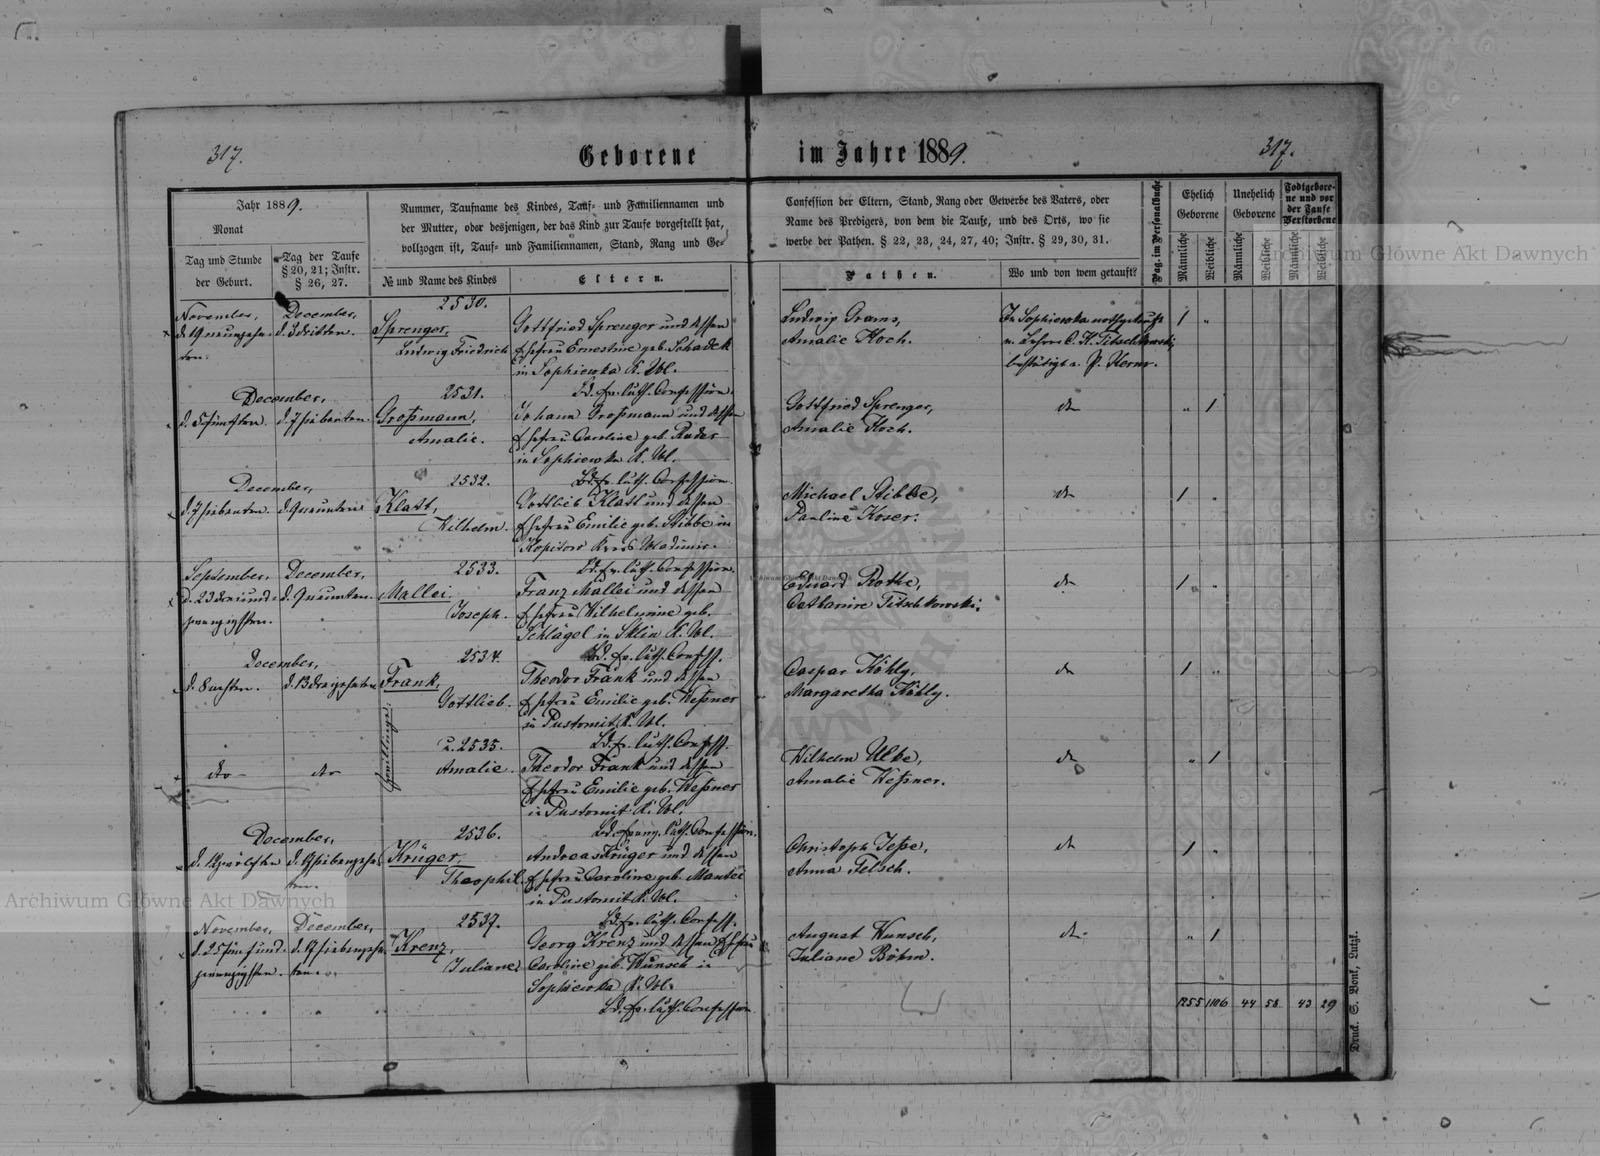 317.
Geborene
im Jahre 1889.
317.
Jahr 1889.
Monat
Tag und Stunde
der Geburt.
Tag der Taufe
§ 20, 21; Instr.
§ 26, 27.
Nummer, Taufname des Kindes, Tauf- und Familiennamen und
der Mutter, oder desjenigen, der das Kind zur Taufe vorgestellt hat,
vollzogen ist, Tauf- und Familiennamen, Stand, Rang und Ge-
№ und Name des Kindes
Eltern.
Confession der Eltern, Stand, Rang oder Gewerbe des Vaters, oder
Name des Predigers, von dem die Taufe, und des Orts, wo sie
werbe der Pathen. § 22, 23, 24, 27, 40; Instr. § 29, 30, 31.
Pathen.
Wo und von wem getauft?
Pag. im Personalbuche
Ehelich
Geborene
Männliche
Weibliche
Unehelich
Geborene
Männliche
Weibliche
Todtgebore-
ne und vor
der Taufe
Verstorbene
Männliche
Weibliche
November,
d. 19 neunzehn-
ten.
December,
d. 3 dritten.
2530.
Sprenger,
Ludwig Friedrich
Gottfried Sprenger und dessen
Ehefrau Ernestine geb. Schadek
in Sophiewka K. Wl.
Bd. ev. luth. Confession.
Ludwig Grams,
Amalie Koch.
In Sophiewka nothgetauft
v. Lehrer C. K. Titschkowski,
bestätigt v. P. Kerm.
1 "
December,
d. 5 fünften.
d. 7 siebenten.
2531.
Großmann,
Amalie.
Johann Großmann und dessen
Ehefrau Caroline geb. Rader
in Sophiewka K. Wl.
Bd. ev. luth. Confession.
Gottfried Sprenger,
Amalie Koch.
do
" 1
December,
d. 7 siebenten.
d. 9 neunten.
2532.
Klatt,
Wilhelm.
Gottlieb Klatt und dessen
Ehefrau Emilie geb. Stibbe in
Kopitow Kreis Wladimir.
Bd. ev. luth. Confession.
Michael Stibbe,
Pauline Koser.
do
1 "
September,
d. 23 drei und-
zwanzigsten.
December,
d. 9 neunten.
2533.
Mallei
Joseph.
Franz Mallei und dessen
Ehefrau Wilhelmine geb.
Schlägel in Sklin K. Wl.
Bd. ev. luth. Confess.
Eduard Rothe,
Catharine Titschkowski.
do
1 "
December,
d. 8 achten.
d. 13 dreizehnten
2534.
Frank,
Gottlieb.
Zwillinge.
Theodor Frank und dessen
Ehefrau Emilie geb. Weßner
in Pustomit K. Wl.
Bd. ev. luth. Confess.
Caspar Kähly,
Margaretha Kähly.
do
1 "
do
do
u. 2535.
Amalie.
Theodor Frank und dessen
Ehefrau Emilie geb. Weßner
in Pustomit K. Wl.
Bd. evang. luth. Confession.
Wilhelm Ulke,
Amalie Weßner.
do
" 1
December,
d. 12 zwölften
d. 17 siebenzehn-
ten.
2536.
Krüger,
Theophil.
Andreas Krüger und dessen
Ehefrau Caroline geb. Mantei
in Pustomit K. Wl.
Bd. ev. luth. Confess.
Christoph Jeße,
Anna Felsch.
do
1 "
November,
d. 25 fünf und-
zwanzigsten.
December,
d. 17 siebenzehn-
ten.
2537.
Krenz,
Juliane.
Georg Krenz und dessen Ehefrau
Caroline geb. Wunsch in
Sophiewka K. Wl.
Bd. ev. luth. Confession
August Wunsch,
Juliane Böhm.
do
" 1
1255 1106 44 58 43 29
Druck. S. Bonk, Lutzk.
Archiwum Główne Akt Dawnych
Archiwum Główne Akt Dawnych
Archiwum Główne Akt Dawnych